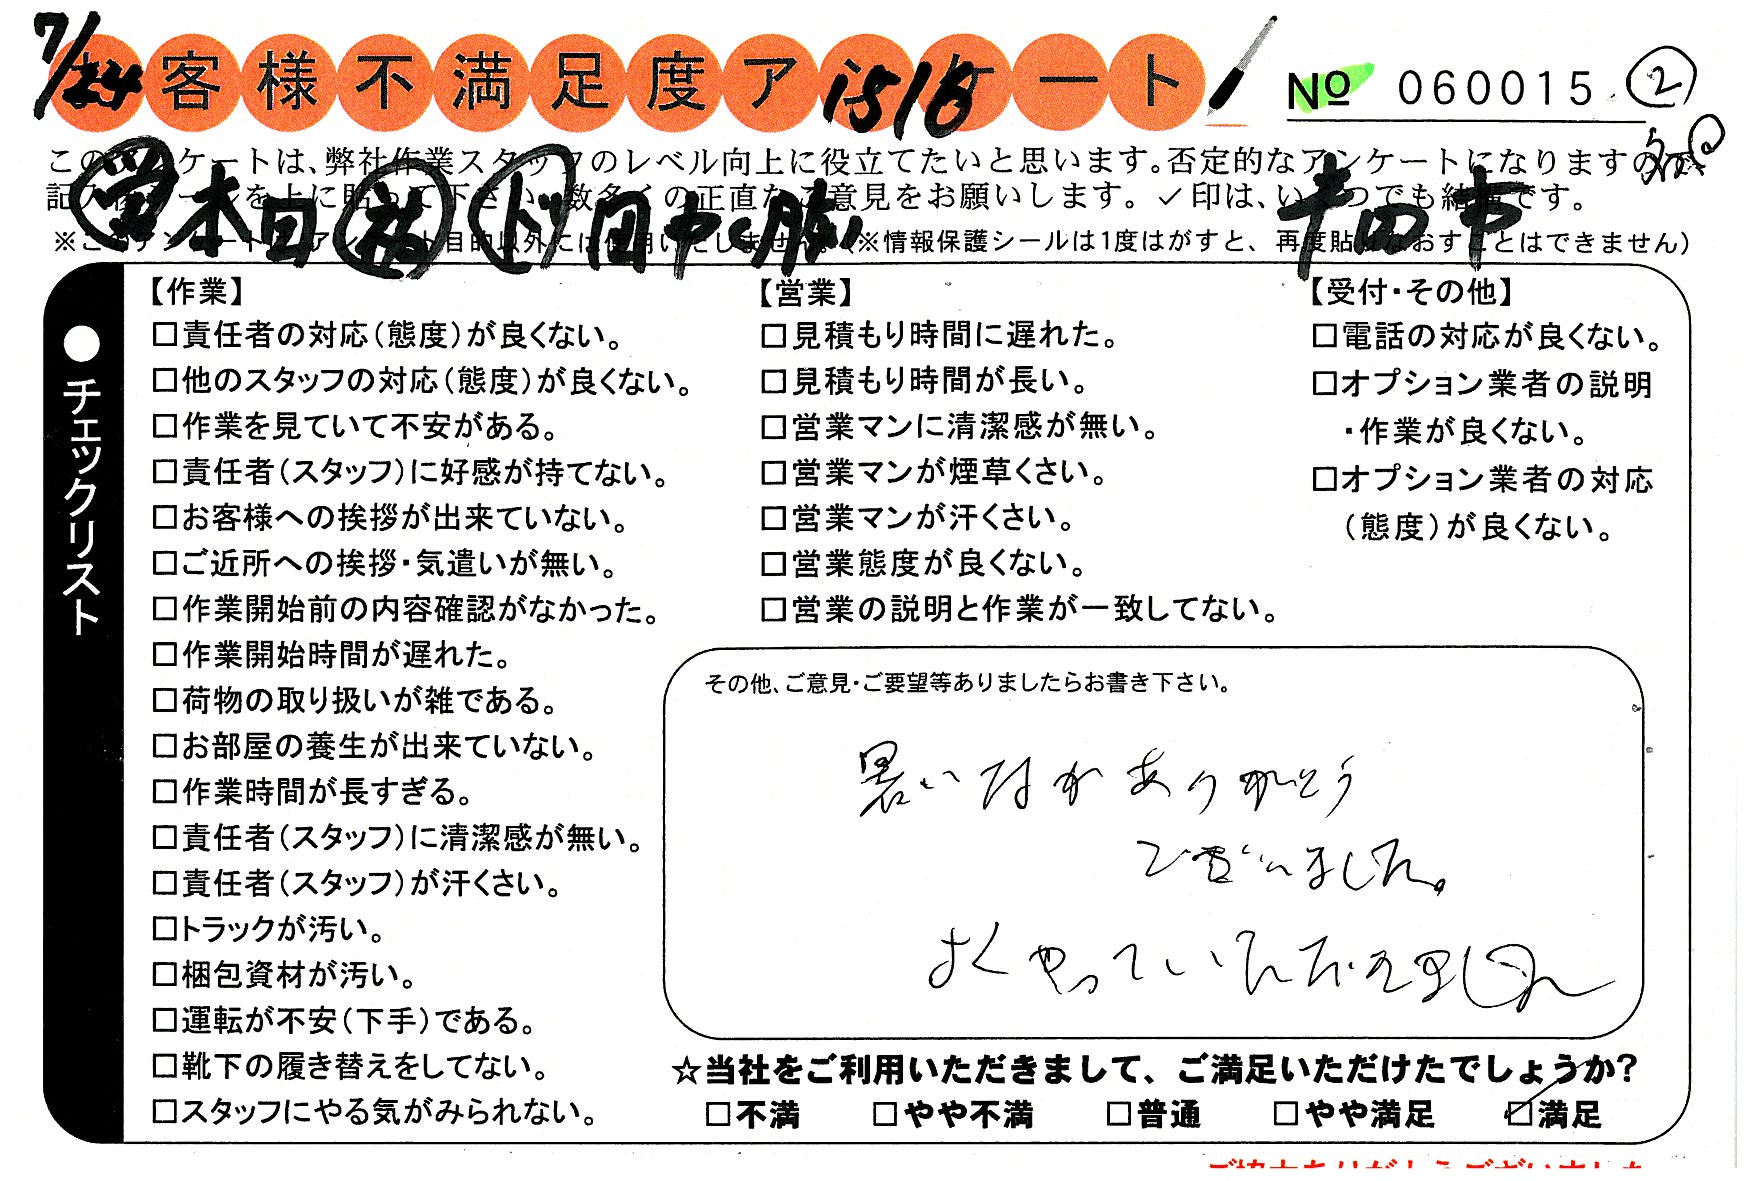 7/24
お客様不満足度アンケート
1518
No 060015 ②
このアンケートは、弊社作業スタッフのレベル向上に役立てたいと思います。否定的なアンケートになりますので
記入後シールを上に貼って下さい。数多くの正直なご意見をお願いします。✓印は、いくつでも結構です。
※このアンケートは、アンケート目的以外には使用いたしません。(※情報保護シールは1度はがすと、再度貼りなおすことはできません)
半田市
●チェックリスト
【作業】
□責任者の対応(態度)が良くない。
□他のスタッフの対応(態度)が良くない。
□作業を見ていて不安がある。
□責任者(スタッフ)に好感が持てない。
□お客様への挨拶が出来ていない。
□ご近所への挨拶・気遣いが無い。
□作業開始前の内容確認がなかった。
□作業開始時間が遅れた。
□荷物の取り扱いが雑である。
□お部屋の養生が出来ていない。
□作業時間が長すぎる。
□責任者(スタッフ)に清潔感が無い。
□責任者(スタッフ)が汗くさい。
□トラックが汚い。
□梱包資材が汚い。
□運転が不安(下手)である。
□靴下の履き替えをしてない。
□スタッフにやる気がみられない。
【営業】
□見積もり時間に遅れた。
□見積もり時間が長い。
□営業マンに清潔感が無い。
□営業マンが煙草くさい。
□営業マンが汗くさい。
□営業態度が良くない。
□営業の説明と作業が一致してない。
【受付・その他】
□電話の対応が良くない。
□オプション業者の説明
・作業が良くない。
□オプション業者の対応
(態度)が良くない。
その他、ご意見・ご要望等ありましたらお書き下さい。
暑いなかありがとう
ございました。
よくやっていただきました
☆当社をご利用いただきまして、ご満足いただけたでしょうか?
□不満 □やや不満 □普通 □やや満足 ☑満足
ご協力ありがとうございました